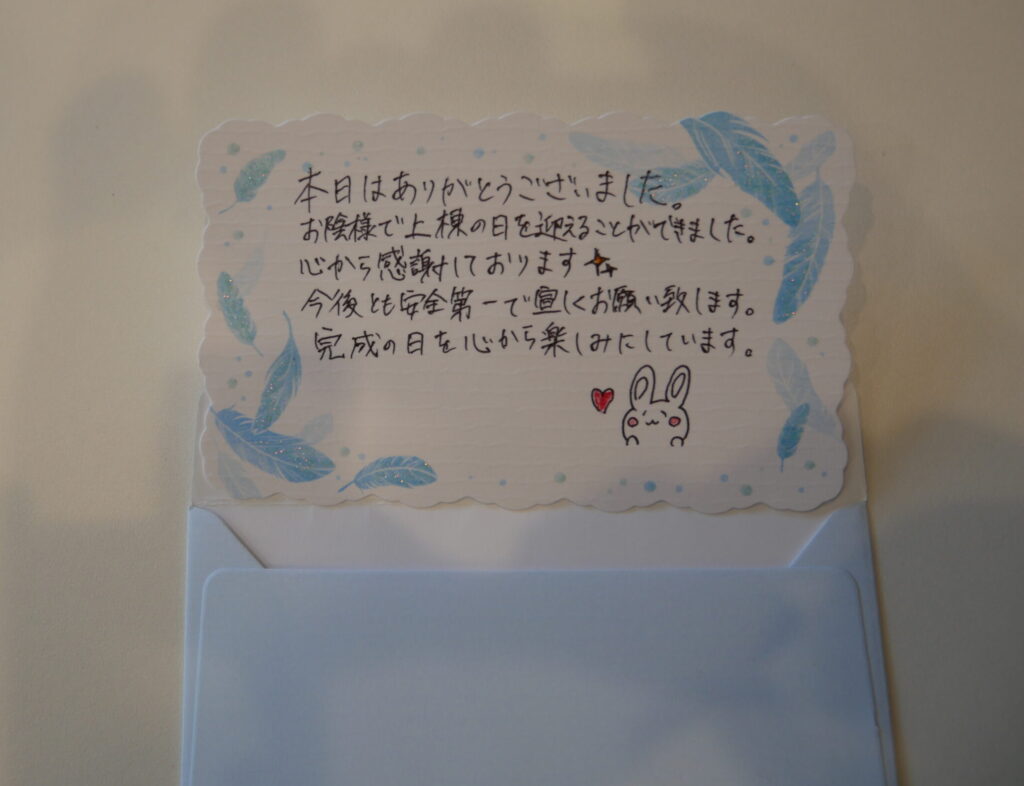 本日はありがとうございました。
お陰様で上棟の日を迎えることができました。
心から感謝しております
今後とも安全第一で宜しくお願い致します。
完成の日を心から楽しみにしています。